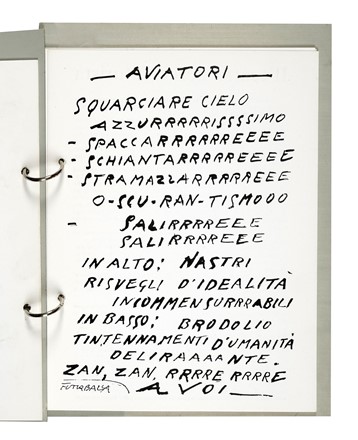 — AVIATORI —
SQUARCIARE CIELO
AZZURRRRRISSSSIMO
- SPACCARRRRRREEEE
- SCHIANTARRRRREEEE
- STRAMAZZARRRRREEE
O-SCU-RAN-TISMOOO
- SALIRRRREEE
SALIRRRREEE
IN ALTO: NASTRI
RISVEGLI D'IDEALITÀ
INCOMMENSURRRABILI
IN BASSO: BRODOLIO
TINTENNAMENTI D'UMANITÀ
DELIRAAAANTE.
ZAN, ZAN, RRRRE RRRRE
FUTURBALLA A VOI —